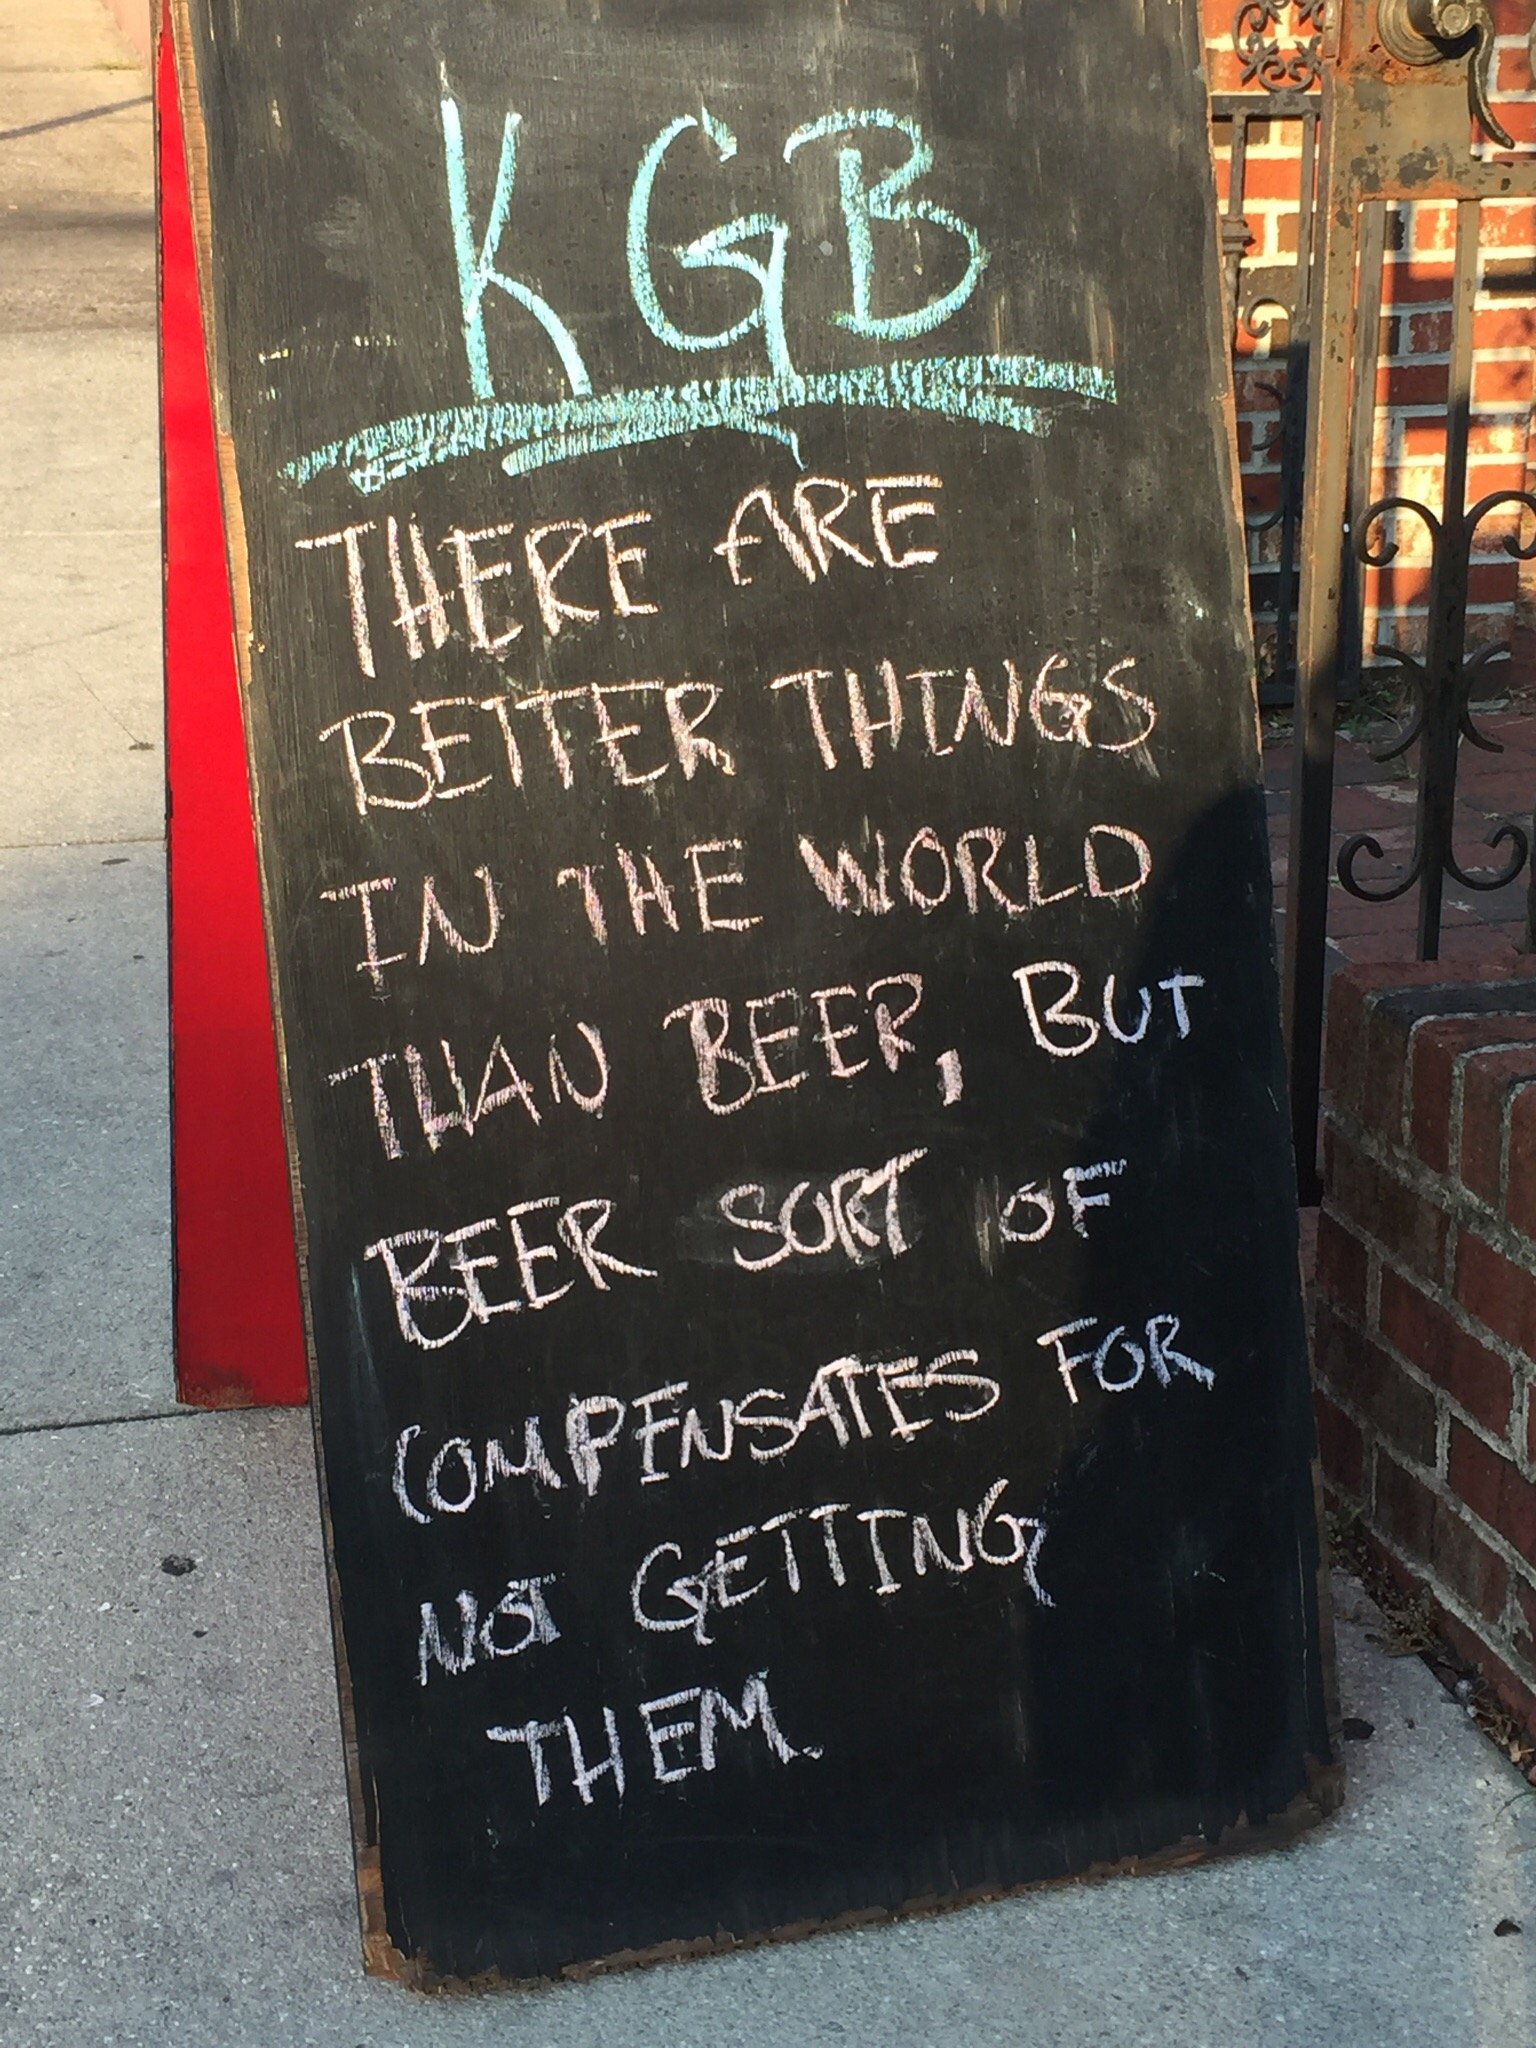 KGB
THERE ARE
BETTER THINGS
IN THE WORLD
THAN BEER, BUT
BEER SORT OF
COMPENSATES FOR
NOT GETTING
THEM